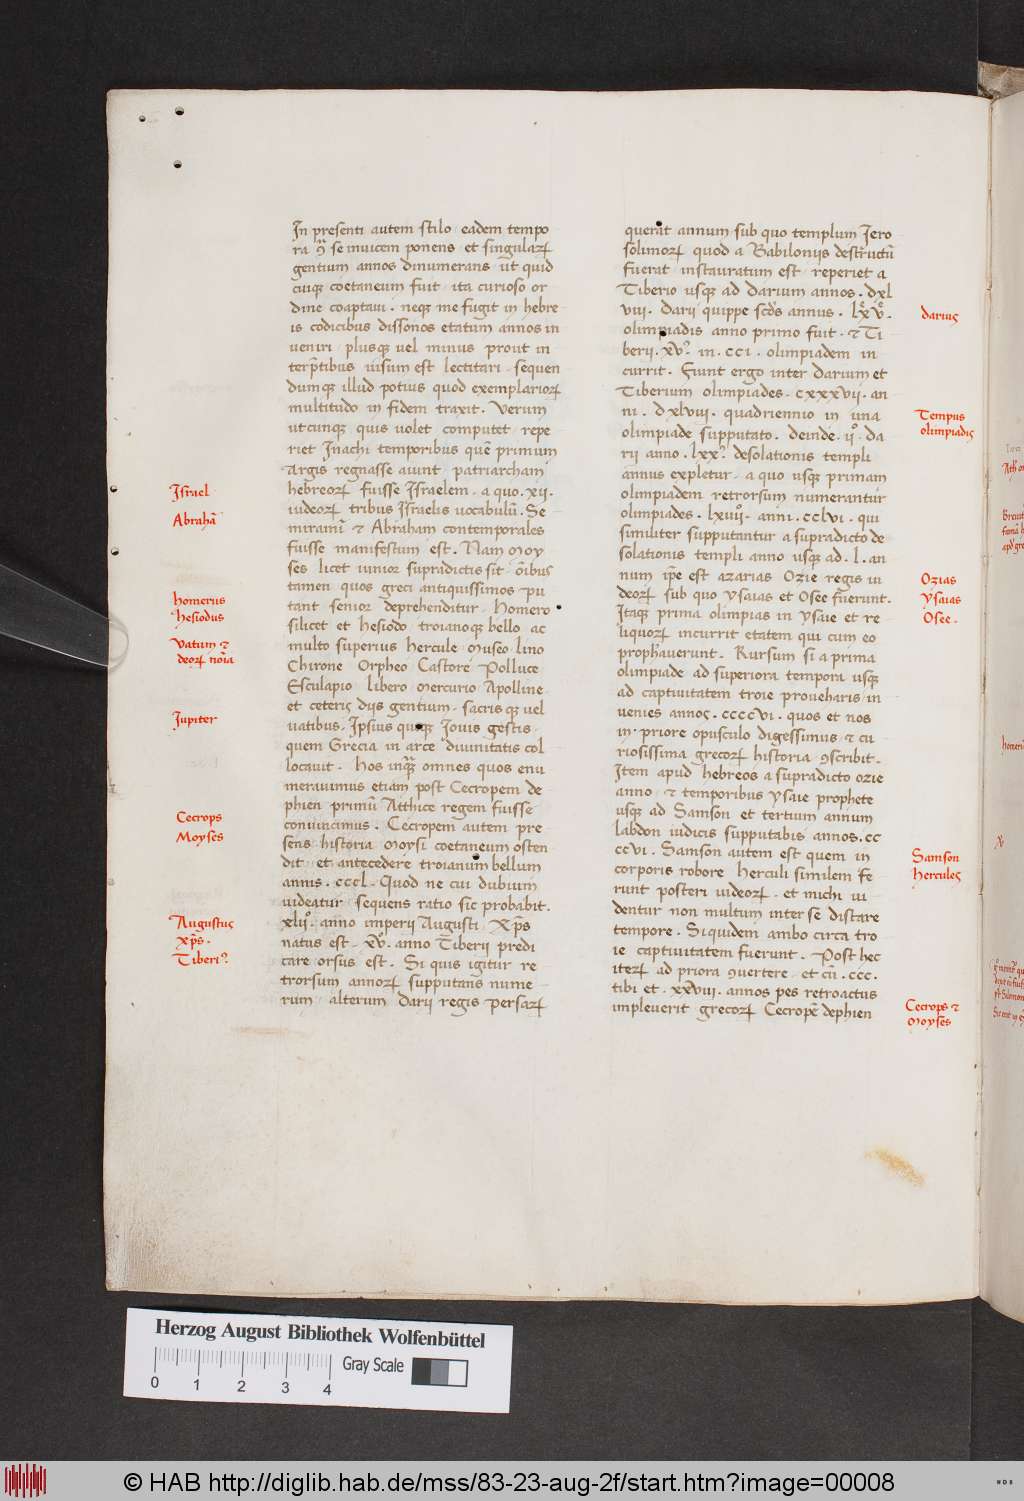 In presenti autem stilo eadem tempo
ra ꝯ̃ se inuicem ponens et singularꝝ
gentium annos dinumerans ut quid
cuiqꝫ coetaneum fuit ita curioso or
dine coaptaui . neqꝫ me fugit in hebre
is codicibus dissonos etatum annos in
veniri plusqꝫ uel minus prout in
terp̃tibus uisum est lectitari sequen
dumqꝫ illud potius quod exemplariorꝝ
multitudo in fidem traxit . Verum
utcunqꝫ quis uolet computet repe
riet Inachi temporibus quẽ primum
Argis regnasse aiunt patriarcham
hebreorꝝ fuisse Israelem . a quo . xii .
iudeorꝝ tribus Israelis uocabulũ . Se
miramĩ ⁊ Abraham contemporales
fuisse manifestum est . Nam Moy
ses licet iunior supradictis sit oĩbus
tamen quos greci antiquissimos pu
tant senior deprehenditur Homero
silicet et hesiodo troianoqꝫ bello ac
multo superius hercule Museo lino
Chirone Orpheo Castore Polluce
Esculapio libero Mercurio Apolline
et ceteris diis gentium sacrisqꝫ uel
uatibus . Ipsius quoqꝫ Iouis gestis
quem Grecia in arce diuinitatis col
locauit . Hos inqꝫ omnes quos enu
merauimus etiam post Cecropem de
phien primũ Atthice regem fuisse
conuincimus . Cecropem autem pre
sens historia Moysi coetaneum osten
dit et antecedere troianum bellum
annis . cccl . Quod ne cui dubium
uideatur sequens ratio sic probabit .
xlii⁰ . anno imperii Augusti xp̃s
natus est . xv⁰ . anno Tiberii predi
care orsus est . Si quis igitur re
trorsum annorꝝ supputans nume
rum alterum Darii regis Persarꝝ
Israel
Abrahã
homerus
hesiodus
Vatum ⁊
deorꝝ noĩa
Iupiter
Cecrops
Moyses
Augustus
xp̃s .
Tiberiꝰ
querat annum sub quo templum Iero
solimorꝝ quod a Babiloniis destructũ
fuerat instauratum est reperiet a
Tiberio usqꝫ ad darium annos . dxl
viii . darii quippe scd̃s annus . lxv .
olimpiadis anno primo fuit . ⁊ Ti
berii . xvꝰ . in . cci . olimpiadem in
currit . Fiunt ergo inter darium et
Tiberium olimpiades . cxxxvii . an
ni . dxlviii . quadriennio in una
olimpiade supputato . deinde . ii⁰ . da
rii anno . lxxꝰ desolationis templi
annus expletur . a quo usqꝫ primam
olimpiadem retrorsum numerantur
olimpiades . lxiiii . anni . cclvi . qui
similiter supputantur a supradicto de
solationis templi anno usqꝫ ad . l . an
num ip̃e est azarias Ozie regis iu
deorꝝ sub quo ysaias et Osee fuerunt .
Itaqꝫ prima olimpias in ysaie et re
liquorꝝ incurrit etatem qui cum eo
prophauerunt . Rursum si a prima
olimpiade ad superiora tempora usqꝫ
ad captiuitatem troie proueharis in
uenies annos . ccccvi . quos et nos
in priore opusculo digessimus ⁊ cu
riosissima grecorꝝ historia ꝯscribit .
Item apud hebreos a supradicto ozie
anno ⁊ temporibus ysaie prophete
usqꝫ ad Samson et tertium annum
labdon iudicis supputabis annos . cc
ccvi . Samson autem est quem in
corporis robore Herculi similem fe
runt posteri iudeorꝝ . et michi ui
dentur non multum inter se distare
tempore . Siquidem ambo circa tro
ie captiuitatem fuerunt . Post hec
iterꝝ ad priora ꝯuertere et cũ . ccc .
tibi et . xxviii . annos pes retroactus
impleuerit grecorꝝ Cecropẽ dephien
darius
Tempus
olimpiadis
Ozias
ysaias
Osee .
Samson
Hercules
Cecrops ⁊
Moyses
Herzog August Bibliothek Wolfenbüttel
Gray Scale
0 1 2 3 4
© HAB http://diglib.hab.de/mss/83-23-aug-2f/start.htm?image=00008